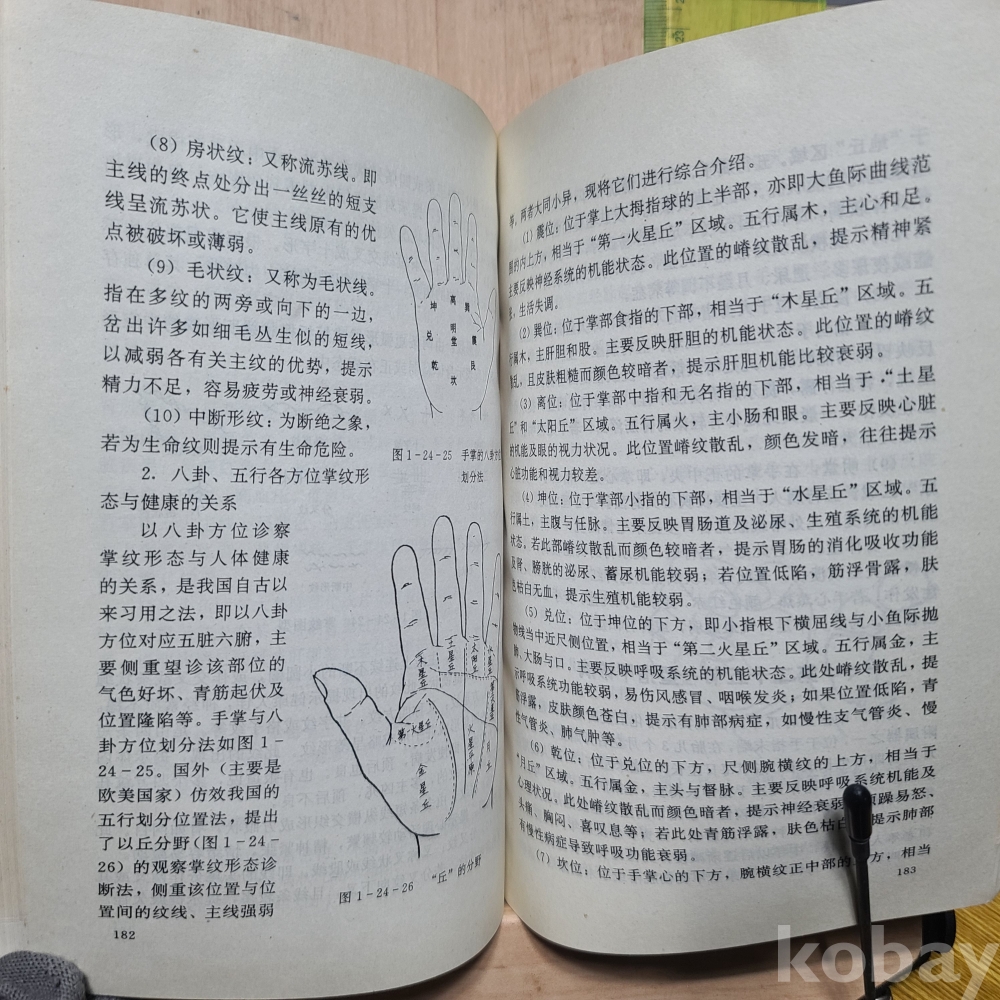 (8) 房状纹：又称流苏线。即
主线的终点处分出一丝丝的短支
线呈流苏状。它使主线原有的优
点被破坏或薄弱。
(9) 毛状纹：又称为毛状线。
指在多纹的两旁或向下的一边，
岔出许多如细毛丛生似的短线，
以减弱各有关主纹的优势，提示
精力不足，容易疲劳或神经衰弱。
(10) 中断形纹：为断绝之象，
若为生命纹则提示有生命危险。
2. 八卦、五行各方位掌纹形
态与健康的关系
以八卦方位诊察
掌纹形态与人体健康
的关系，是我国自古以
来习用之法，即以八卦
方位对应五脏六腑，主
要侧重望诊该部位的
气色好坏、青筋起伏及
位置隆陷等。手掌与八
卦方位划分法如图 1-
24-25。国外（主要是
欧美国家）仿效我国的
五行划分位置法，提出
了以丘分野(图 1-24-
26）的观察掌纹形态诊
断法，侧重该位置与位
置间的纹线、主线强弱
182
坤 离 巽
兑 明堂 震
乾 坎 艮
图 1-24-25 手掌的八卦方位
划分法
木星丘 土星丘 太阳丘 水星丘
第一火星丘 第二火星丘
金星丘 火星平原 月丘
图 1-24-26 “丘”的分野
等，两者大同小异，现将它们进行综合介绍。
(1) 震位：位于掌上大拇指球的上半部，亦即大鱼际曲线范
围的内上方，相当于“第一火星丘”区域。五行属木，主心和足。
主要反映神经系统的机能状态。此位置的嵴纹散乱，提示精神紧
张，生活失调。
(2) 巽位：位于掌部食指的下部，相当于“木星丘”区域。五
行属木，主肝胆和股。主要反映肝胆的机能状态。此位置的嵴纹
散乱，且皮肤粗糙而颜色较暗者，提示肝胆机能比较衰弱。
(3) 离位：位于掌部中指和无名指的下部，相当于“土星
丘”和“太阳丘”区域。五行属火，主小肠和眼。主要反映心脏
的机能及眼的视力状况。此位置嵴纹散乱，颜色发暗，往往提示
心脏功能和视力较差。
(4) 坤位：位于掌部小指的下部，相当于“水星丘”区域。五
行属土，主腹与任脉。主要反映胃肠道及泌尿、生殖系统的机能
状态。若此部嵴纹散乱而颜色较暗者，提示胃肠的消化吸收功能
及肾、膀胱的泌尿、蓄尿机能较弱；若位置低陷，筋浮骨露，肤
色枯白无血，提示生殖机能较弱。
(5) 兑位：位于坤位的下方，即小指根下横屈线与小鱼际抛
物线当中近尺侧位置，相当于“第二火星丘”区域。五行属金，主
肺、大肠与口。主要反映呼吸系统的机能状态。此处嵴纹散乱，提
示呼吸系统功能较弱，易伤风感冒、咽喉发炎；如果位置低陷，青
筋浮露，皮肤颜色苍白，提示有肺部病症，如慢性支气管炎、慢
性气管炎、肺气肿等。
(6) 乾位：位于兑位的下方，尺侧腕横纹的上方，相当于
“月丘”区域。五行属金，主头与督脉。主要反映呼吸系统机能及
心理状况。此处嵴纹散乱而颜色暗者，提示神经衰弱 躁易怒、
头痛、胸闷、喜叹息等；若此处青筋浮露，肤色枯白 提示肺部
有慢性病症导致呼吸功能衰弱。
(7) 坎位：位于手掌心的下方，腕横纹正中部的 方，相当
183
kobay